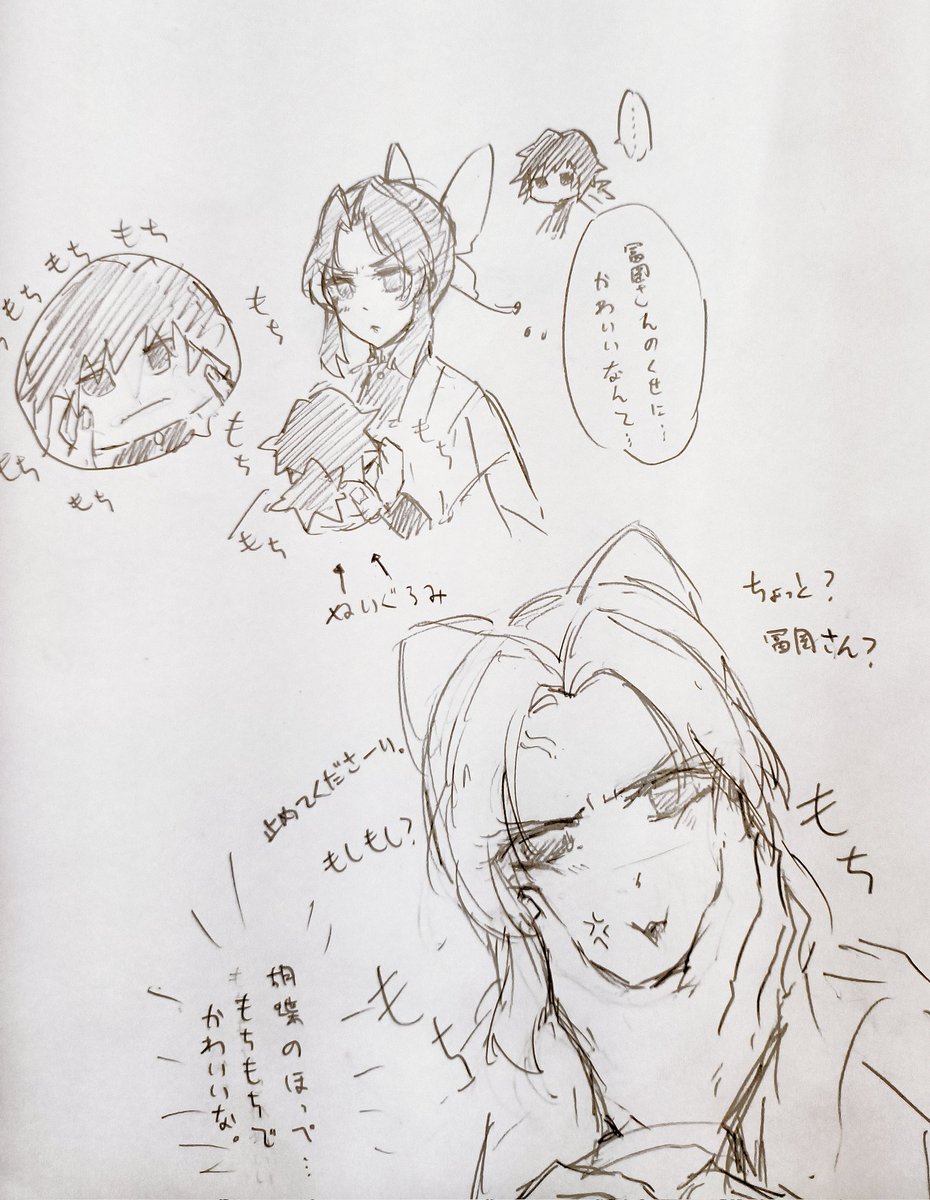 ……
冨岡さんのくせに…
かわいいなんて…
もち
もち
もち
もち
もち
もち
もち
もち
もち
もち
ぬいぐるみ
ちょっと？
冨岡さん？
止めてくださーい。
もしもし？
もち
もち
胡蝶のほっぺ…
もちもちで
かわいいな。